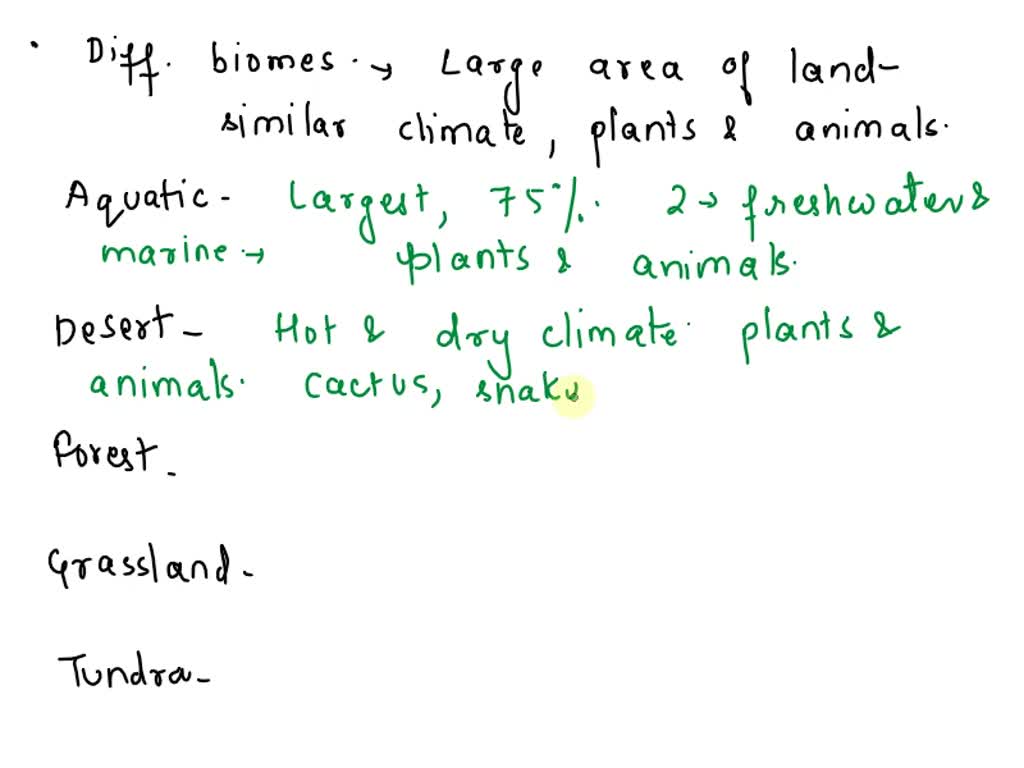 • Diff. biomes. → Large area of land-
similar climate, plants & animals.
Aquatic - Largest, 75%. 2 → freshwater &
marine → plants & animals.
Desert - Hot & dry climate. plants &
animals. cactus, snake
Forest -
Grassland -
Tundra -